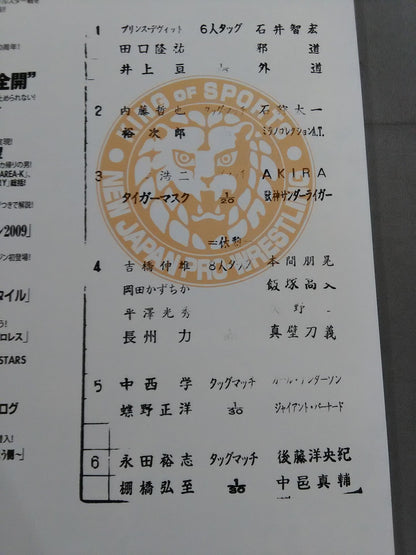 スター戦を
の周年!
全開"
止められない!
か帰りの男!
AREA-K」、
RY」総括!
つきで解説!
ン2009』
ジン初登場!
タイル」
う!
ロレス」
STARS
ログ
潜入!
う興~」
1 プリンス・デヴィット 6人タッグ 石井智宏
田口隆祐 邪道
井上亘 外道
KING OF SPORTS
NEW JAPAN PRO-WRESTLING
2 内藤哲也 タッグマッチ 石狩太一
裕次郎 ミラノコレクションA.T.
3 浩二 AKIRA
タイガーマスク 1/20 獣神サンダーライガー
=休憩
4 吉橋伸雄 8人タッグ 本間朋晃
岡田かずちか 飯塚高史
平澤光秀 矢野
長州力 真壁刀義
5 中西学 タッグマッチ カール・アンダーソン
蝶野正洋 1/30 ジャイアント・バーナード
6 永田裕志 タッグマッチ 後藤洋央紀
棚橋弘至 1/30 中邑真輔